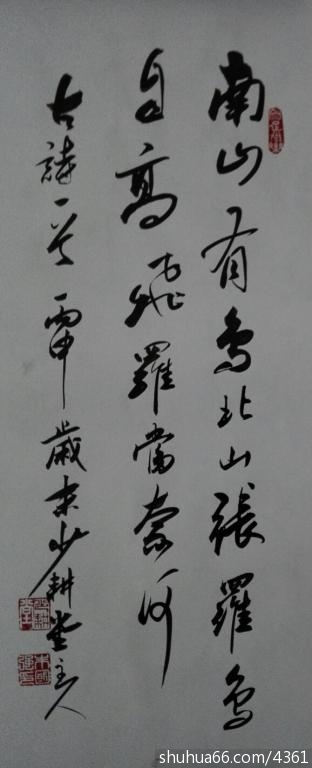 南山有鸟北山张罗鸟
自高飞羅當奈何
古詩一首丙申歲末少耕堂主人
shuhua66.com/4361